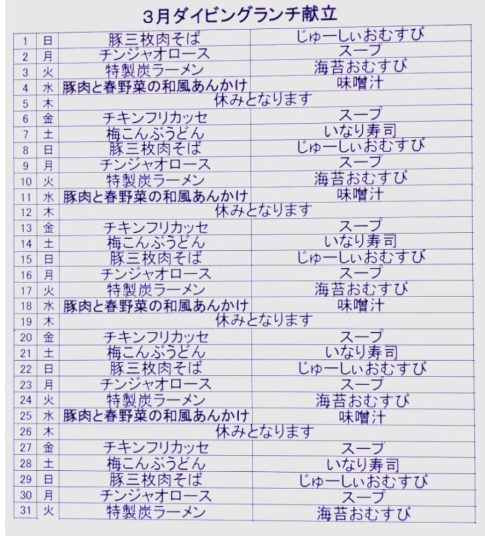 ３月ダイビングランチ献立
1 日 豚三枚肉そば じゅーしぃおむすび
2 月 チンジャオロース スープ
3 火 特製炭ラーメン 海苔おむすび
4 水 豚肉と春野菜の和風あんかけ 味噌汁
5 木 休みとなります
6 金 チキンフリカッセ スープ
7 土 梅こんぶうどん いなり寿司
8 日 豚三枚肉そば じゅーしぃおむすび
9 月 チンジャオロース スープ
10 火 特製炭ラーメン 海苔おむすび
11 水 豚肉と春野菜の和風あんかけ 味噌汁
12 木 休みとなります
13 金 チキンフリカッセ スープ
14 土 梅こんぶうどん いなり寿司
15 日 豚三枚肉そば じゅーしぃおむすび
16 月 チンジャオロース スープ
17 火 特製炭ラーメン 海苔おむすび
18 水 豚肉と春野菜の和風あんかけ 味噌汁
19 木 休みとなります
20 金 チキンフリカッセ スープ
21 土 梅こんぶうどん いなり寿司
22 日 豚三枚肉そば じゅーしぃおむすび
23 月 チンジャオロース スープ
24 火 特製炭ラーメン 海苔おむすび
25 水 豚肉と春野菜の和風あんかけ 味噌汁
26 木 休みとなります
27 金 チキンフリカッセ スープ
28 土 梅こんぶうどん いなり寿司
29 日 豚三枚肉そば じゅーしぃおむすび
30 月 チンジャオロース スープ
31 火 特製炭ラーメン 海苔おむすび